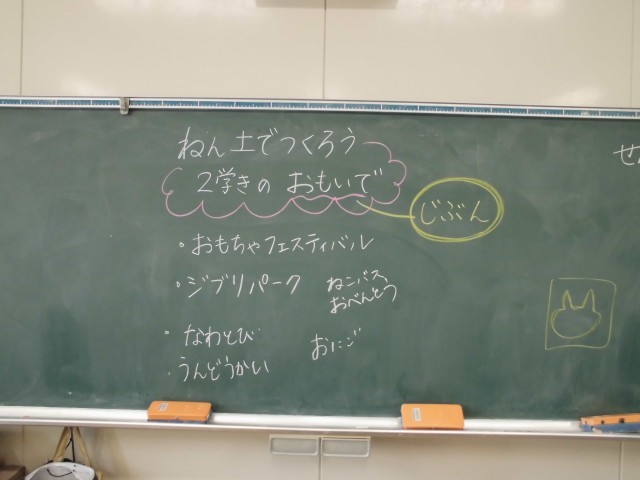 ねん土でつくろう
2学きの おもいで
じぶん
・おもちゃフェスティバル
・ジブリパーク
ねこバス、
おべんとう
・なわとび
おにご
・うんどうかい
せ